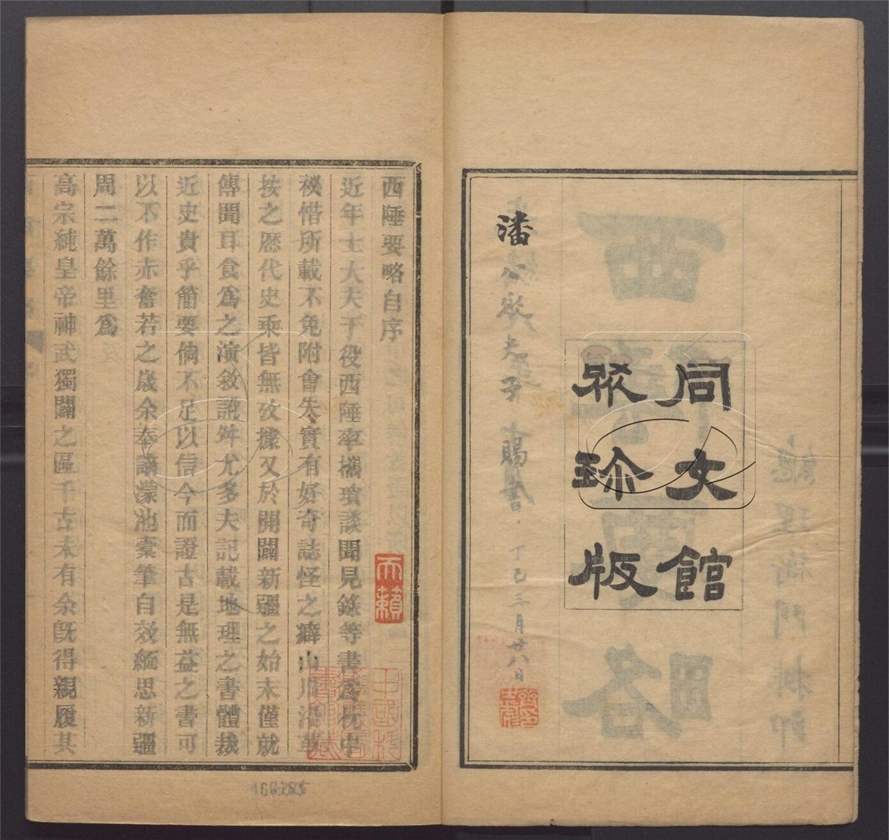 同文館
聚珍版
潘公夫子賜書
丁巳三月廿八日
西陲要略自序
近年士大夫于役西陲率攜瑣談聞見錄等書爲枕中
祕惜所載不免附會失實有好奇誌怪之癖山川沿革
按之歷代史乘皆無攷據又於開闢新疆之始末僅就
傳聞耳食爲之演敘訛舛尤多夫記載地理之書體裁
近史貴乎簡要倘不足以信今而證古是無益之書可
以不作赤奮若之歲余奉謫濛池橐筆自效緬思新疆
周二萬餘里爲
高宗純皇帝神武獨闢之區千古未有余旣得親履其